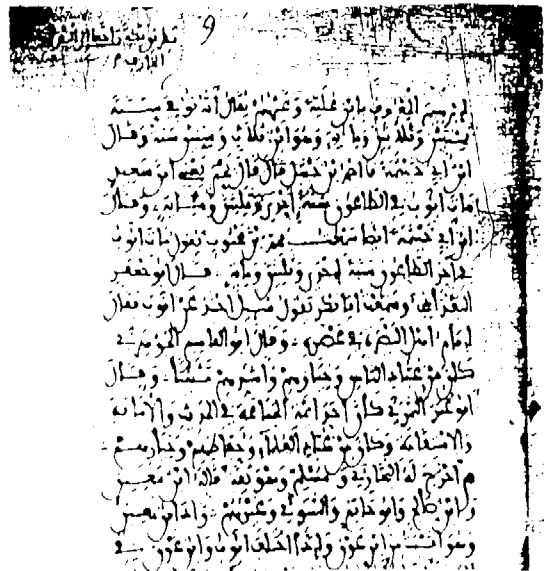 9
المعروف بابن علية وغيرهم يقال أنه توفي سنة
وثلاثين وماية وهو ابن ثلاث وستين سنة وقال
ابن أبي خيثمة نا احمد بن حنبل قال قال يحيى ابن سعيد
مات ايوب في الطاعون سنة إحدى وثلثين ومائة وقال
ابن أبي خيثمة أيضا سمعت محمد بن محبوب يقول مات ايوب
في اخر الطاعون سنة احدى وثلثين وماية قال ابو جعفر
وسمعت ابا نصر يقول سيل احمد عن ايوب فقال
إمام اهل البصرة في عصره وقال ابو القاسم الجوهري
كان من عباد الناس وخيارهم واشدهم تثبتا وقال
أبو عمر النمري كان احد ايمة الجماعة في الحديث والامانة
والاستقامة وكان من عباد العلماء وحفاظهم وخيارهم
اخرج له البخاري ومسلم وهو ثقة قاله ابن معين
وابن صالح وابو حاتم والنسوي وغيرهم زاد ابن معين
وهو اثبت من ابن عون وإذا اختلف ايوب وابن عون في